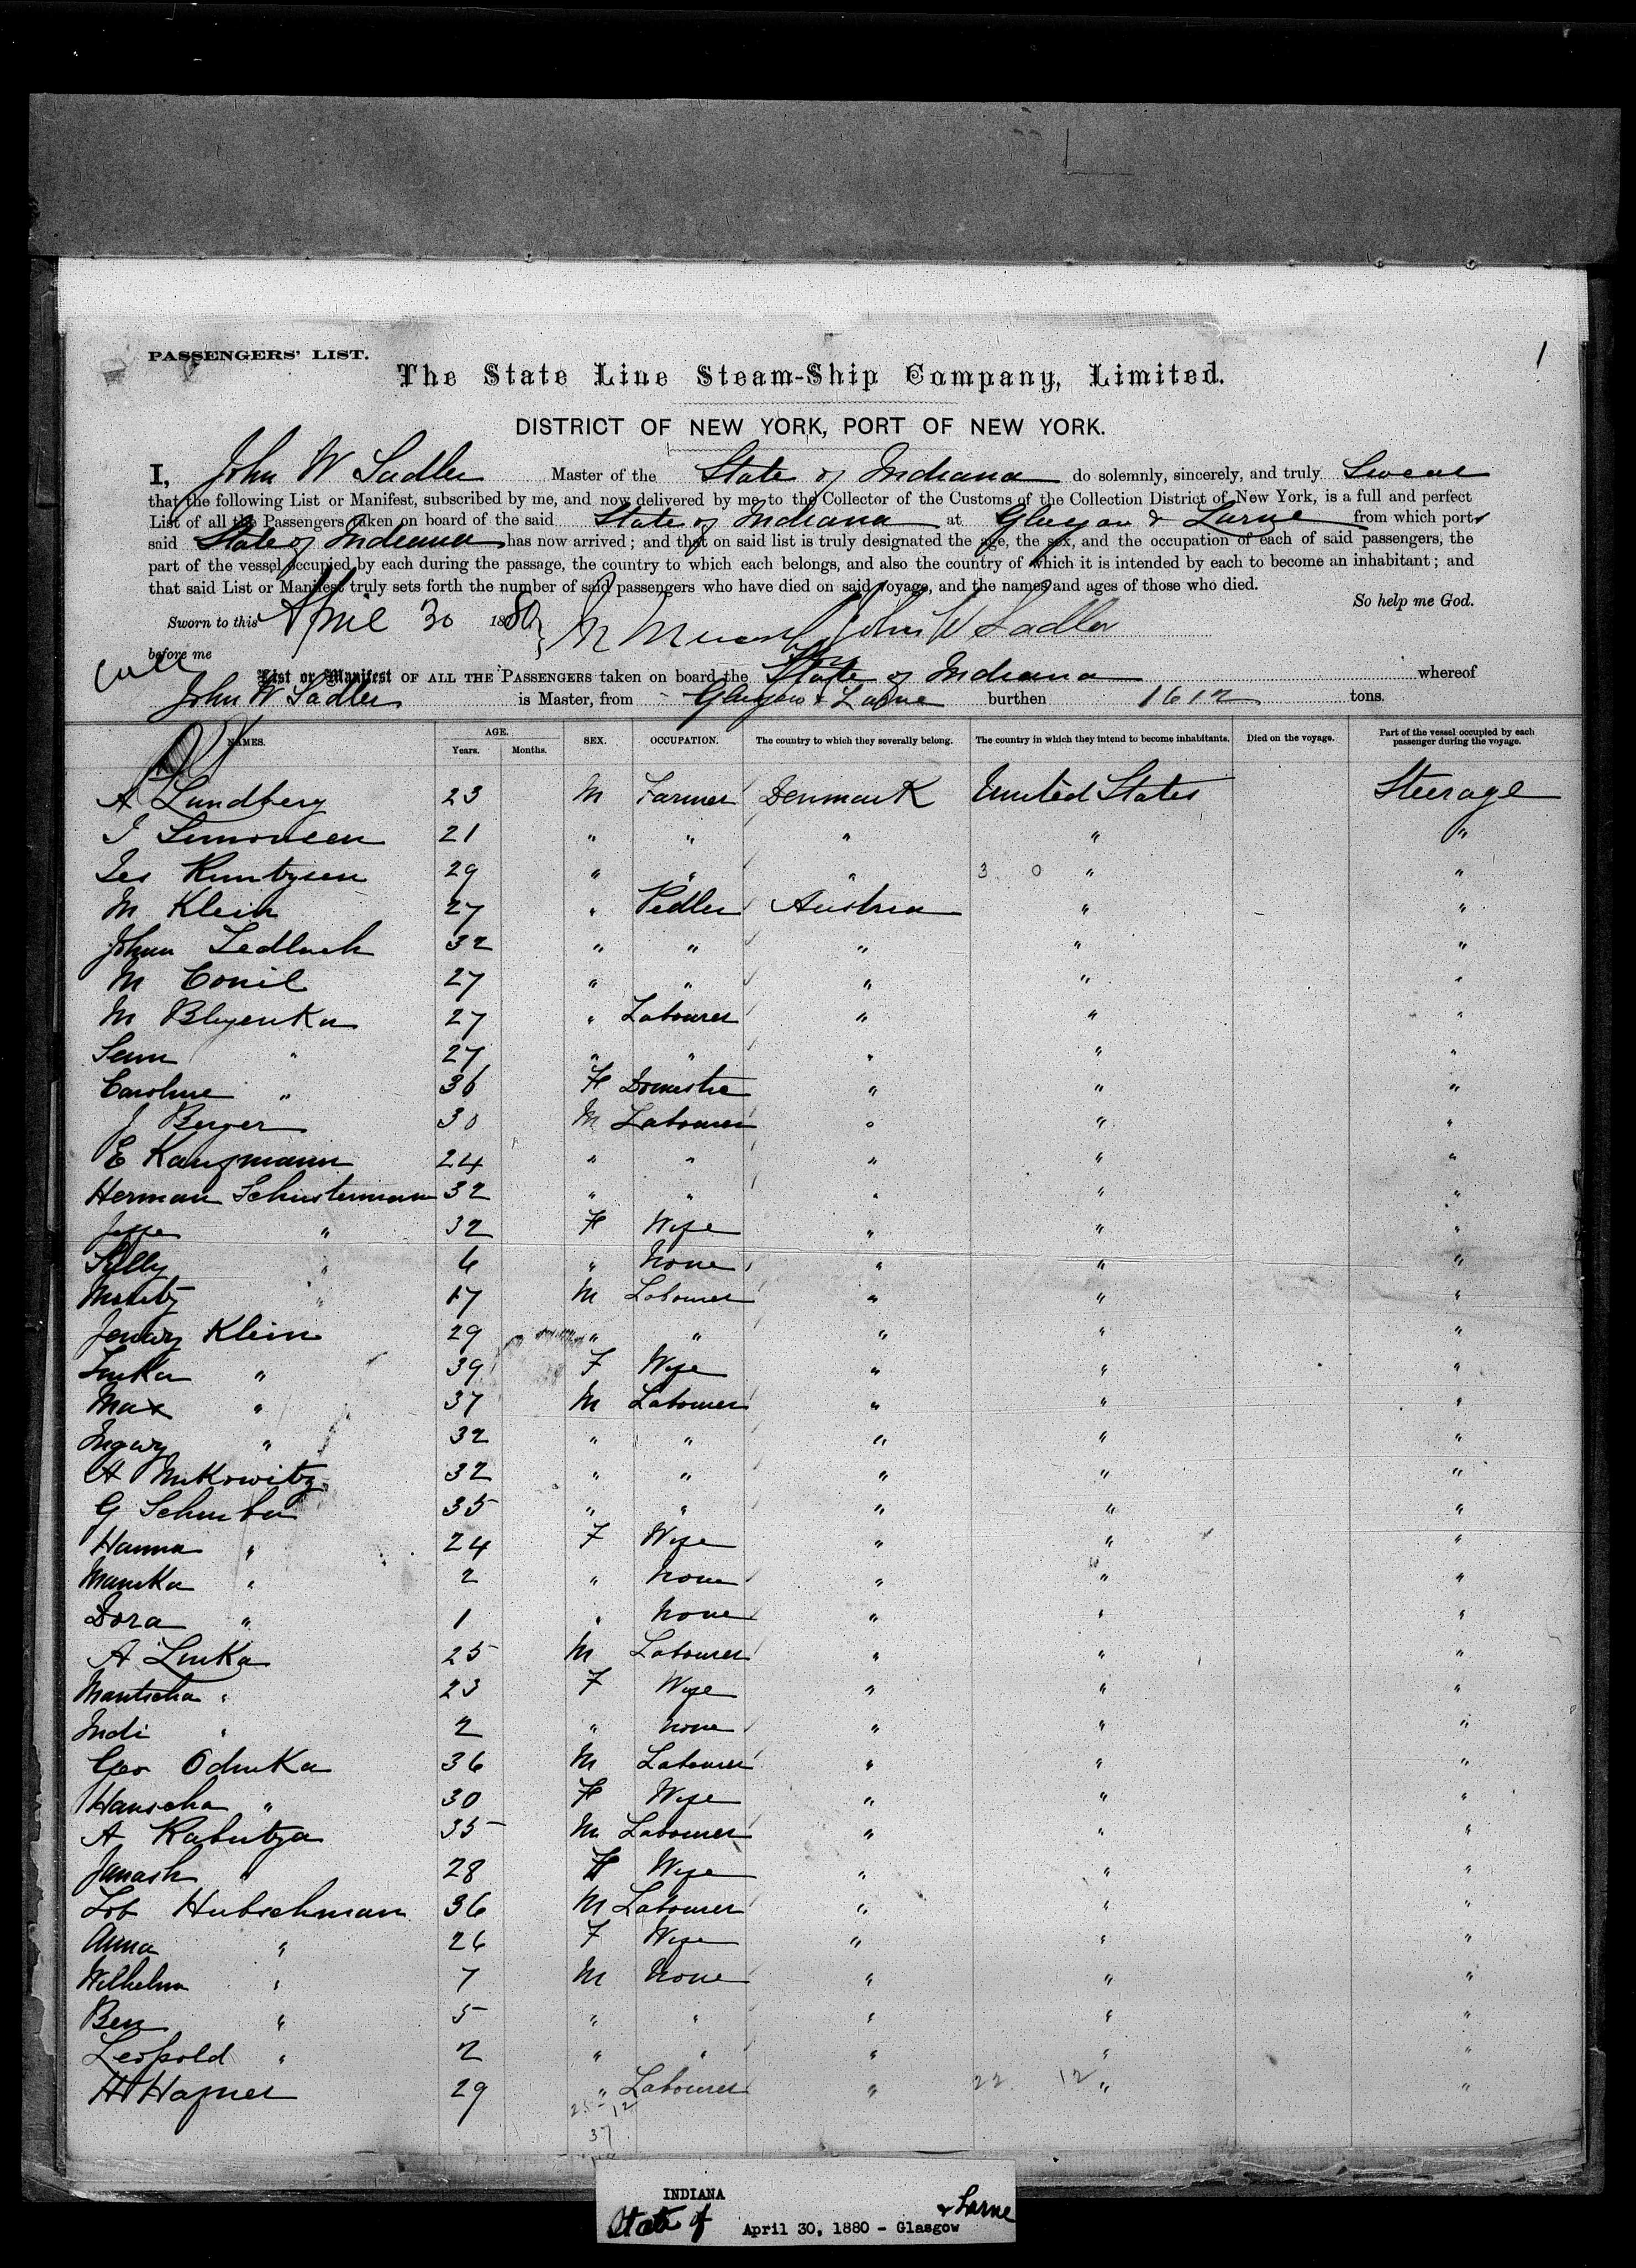 1
PASSENGERS' LIST.
The State Line Steam-Ship Company, Limited.
DISTRICT OF NEW YORK, PORT OF NEW YORK.
I, John W Sadler Master of the State of Indiana do solemnly, sincerely, and truly Swear
that the following List or Manifest, subscribed by me, and now delivered by me to the Collector of the Customs of the Collection District of New York, is a full and perfect
List of all the Passengers taken on board of the said State of Indiana at Glasgow & Larne from which ports
said State of Indiana has now arrived; and that on said list is truly designated the age, the sex, and the occupation of each of said passengers, the
part of the vessel occupied by each during the passage, the country to which each belongs, and also the country of which it is intended by each to become an inhabitant; and
that said List or Manifest truly sets forth the number of said passengers who have died on said voyage, and the names and ages of those who died.
So help me God.
Sworn to this April 30 1880 John W Sadler
before me
List or Manifest OF ALL THE PASSENGERS taken on board the State of Indiana whereof
John W Sadler is Master, from Glasgow & Larne burthen 1612 tons.
NAMES. AGE. Years. Months. SEX. OCCUPATION. The country to which they severally belong. The country in which they intend to become inhabitants. Died on the voyage. Part of the vessel occupied by each passenger during the voyage.
A Lundberg 23 M Farmer Denmark United States Steerage
I Simonsen 21 " " " " "
Jes Kuntzsen 29 " " " 3 0 " "
M Klein 27 " Pedler Austria " "
Johann Sedlach 32 " " " " "
M Conil 27 " " " " "
M Blyenka 27 " Labourer " " "
" 27 " " " " "
Caroline " 36 F Domestic " " "
J Berger 30 M Labourer " " "
E Kaufmann 24 " " " " "
Herman Schusterman 32 " " " " "
" 32 F Wife " " "
" 6 " None " " "
Moritz " 17 M Labourer " " "
Klein 29 " " " " "
" 39 F Wife " " "
Max " 37 M Labourer " " "
" 32 " " " " "
H Mikowitz 32 " " " " "
G 35 " " " " "
Hanna " 24 F Wife " " "
" 2 " None " " "
Dora " 1 " None " " "
A Linka 25 M Labourer " " "
Mantscha " 23 F Wife " " "
Indi " 2 " None " " "
Geo Odinka 36 M Labourer " " "
Hanscha " 30 F Wife " " "
A Kabutza 35 M Labourer " " "
Janash " 28 F Wife " " "
Lob Hubschman 36 M Labourer " " "
Anna " 26 F Wife " " "
Wilhelm " 7 M None " " "
Ben " 5 " " " " "
Leopold " 2 " " " " "
H Hafner 29 " Labourer " 22 12 " "
25 12
37
INDIANA
State of April 30, 1880 - Glasgow & Larne